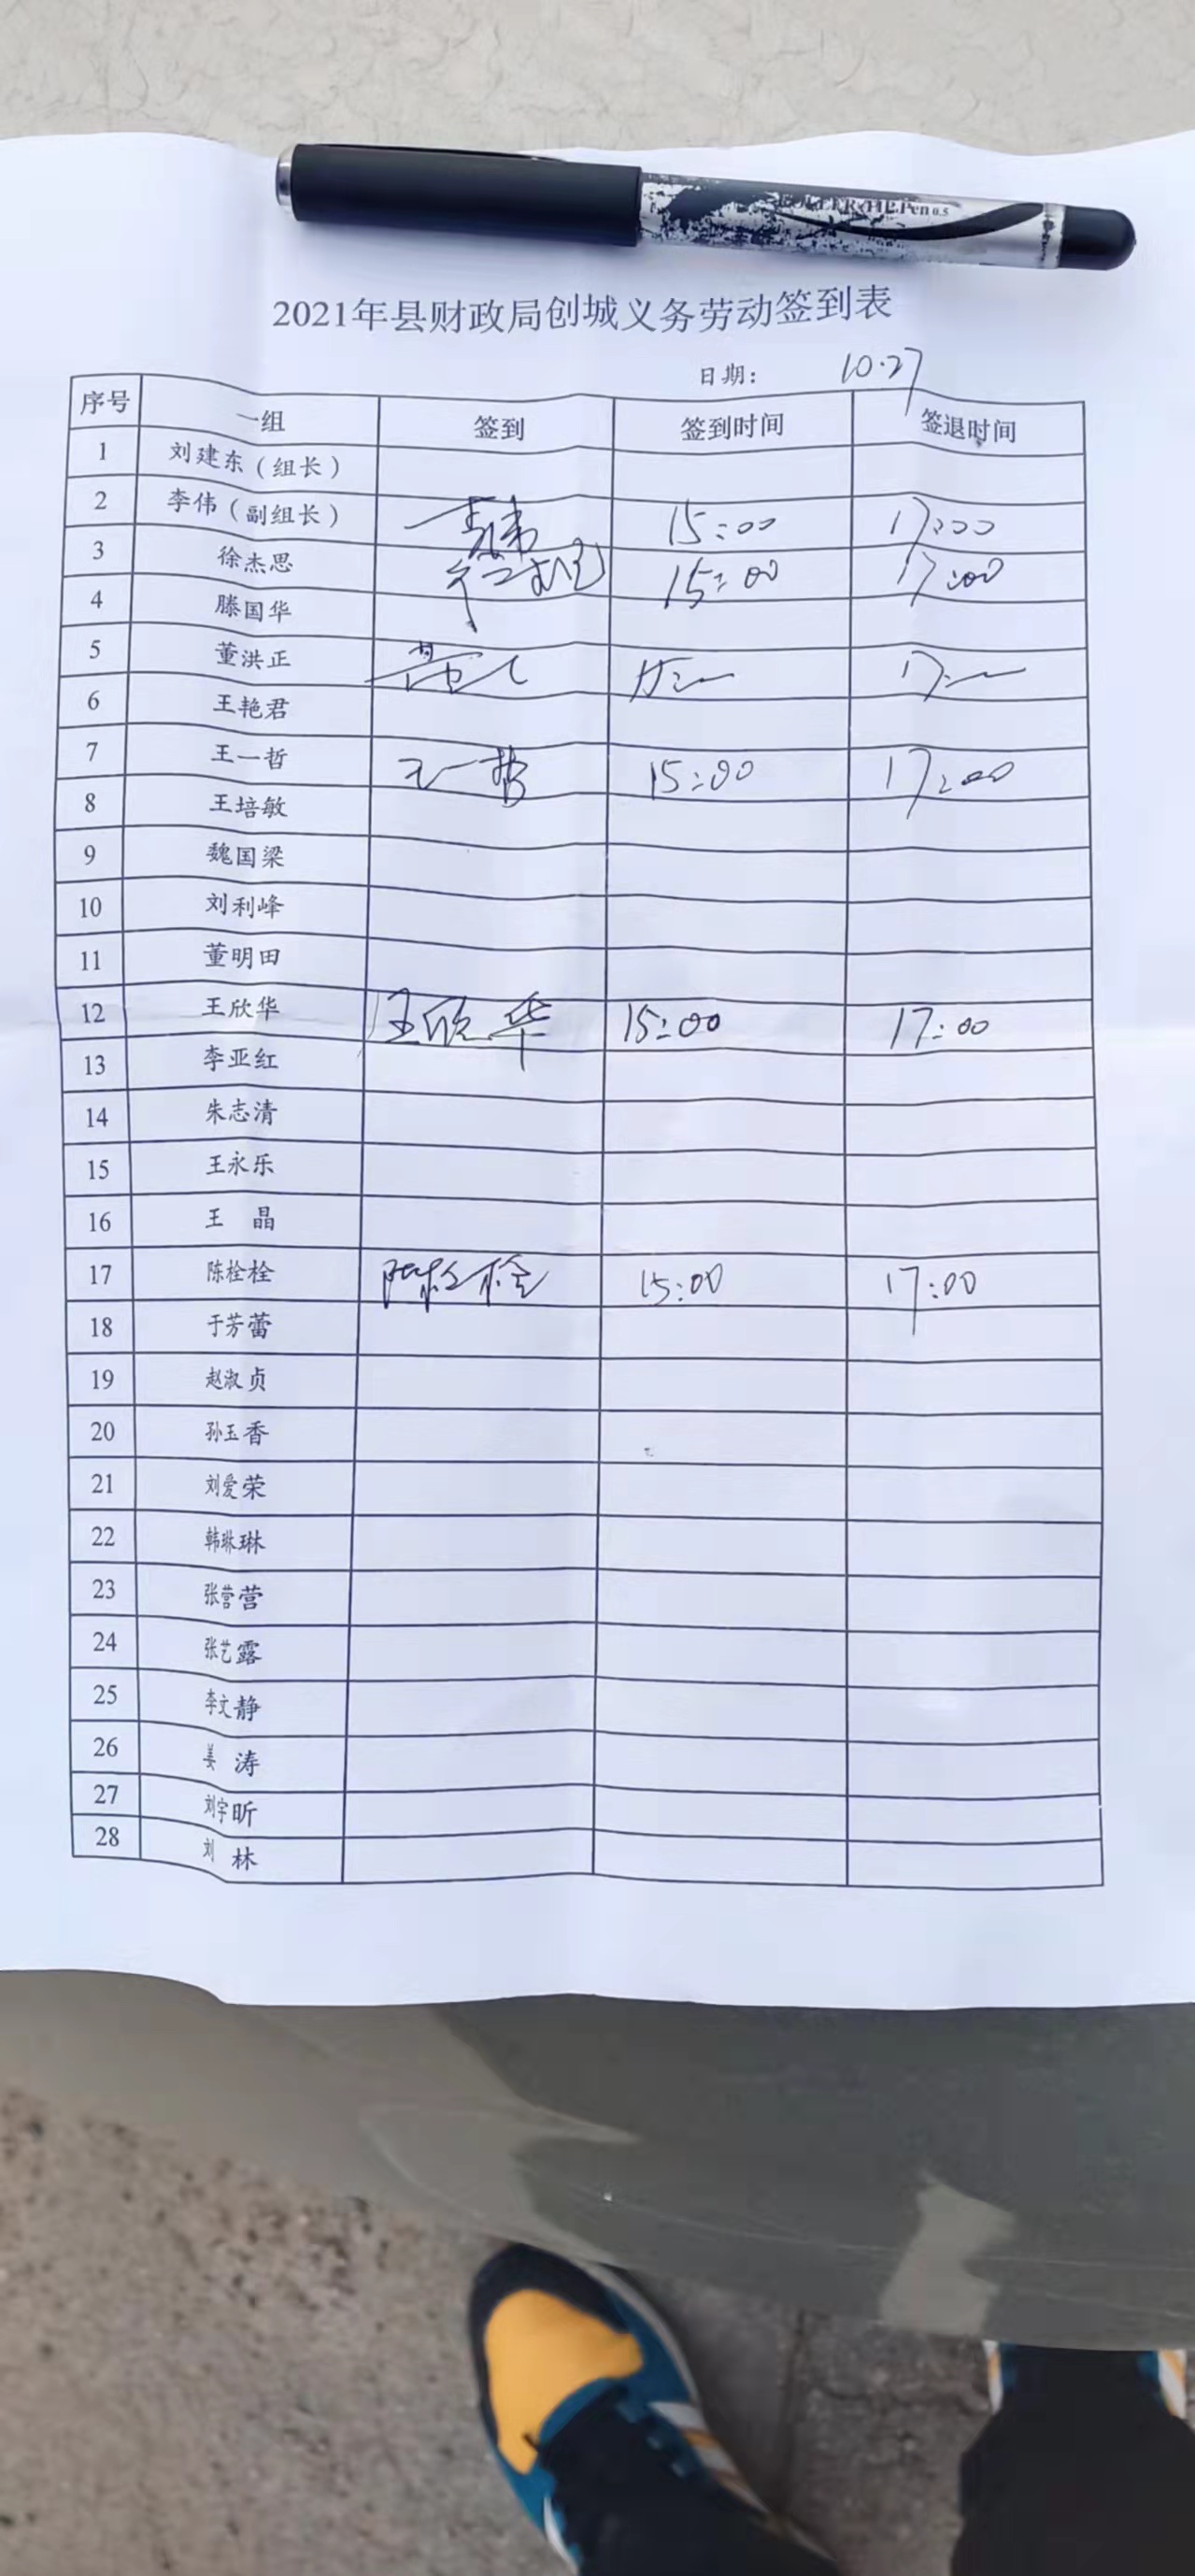 Pen 0.5
2021年县财政局创城义务劳动签到表
日期: 10.27
序号 一组 签到 签到时间 签退时间
1 刘建东(组长)
2 李伟(副组长) 李伟 15:00 17:00
3 徐杰思 15:00 17:00
4 滕国华
5 董洪正 15: 17:
6 王艳君
7 王一哲 王一哲 15:00 17:00
8 王培敏
9 魏国梁
10 刘利峰
11 董明田
12 王欣华 王欣华 15:00 17:00
13 李亚红
14 朱志清
15 王永乐
16 王 晶
17 陈栓栓 陈栓栓 15:00 17:00
18 于芳蕾
19 赵淑贞
20 孙玉香
21 刘爱荣
22 韩琳琳
23 张营营
24 张艺露
25 李文静
26 姜 涛
27 刘宇昕
28 刘 林